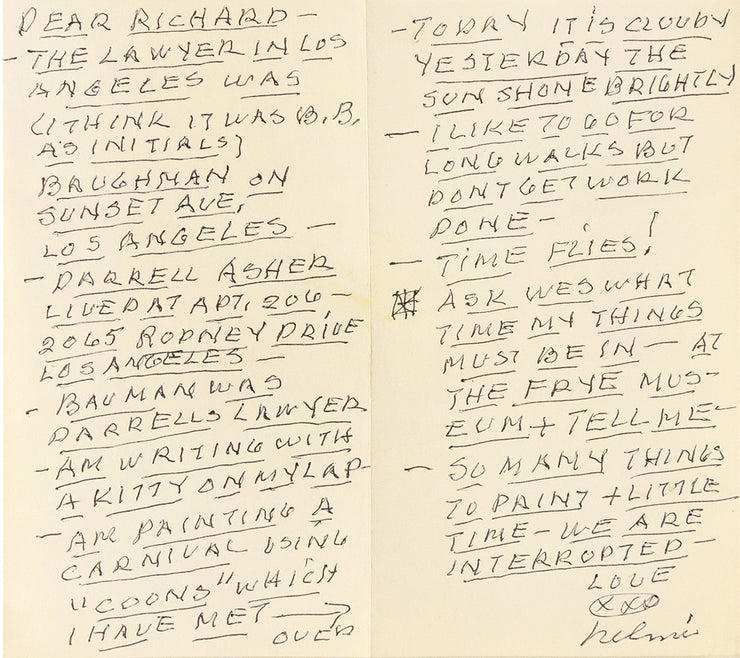 DEAR RICHARD —
— THE LAWYER IN LOS
ANGELES WAS
(I THINK IT WAS B.B.
AS INITIALS)
BAUGHMAN ON
SUNSET AVE,
LOS ANGELES —
— DARRELL ASHER
LIVED AT APT, 206 —
2065 RODNEY DRIVE
LOS ANGELES —
- BAUMAN WAS
DARRELLS LAWYER
— AM WRITING WITH
A KITTY ON MY LAP-
— AM PAINTING A
CARNIVAL USING
"COONS" WHICH
I HAVE MET →
OVER
— TODAY IT IS CLOUDY
YESTERDAY THE
SUN SHONE BRIGHTLY
— I LIKE TO GO FOR
LONG WALKS BUT
DONT GET WORK
DONE —
— TIME FLIES!
ASK WES WHAT
TIME MY THINGS
MUST BE IN — AT
THE FRYE MUS-
EUM + TELL ME —
— SO MANY THINGS
TO PAINT + LITTLE
TIME — WE ARE
INTERRUPTED —
LOVE
XXO
helmi